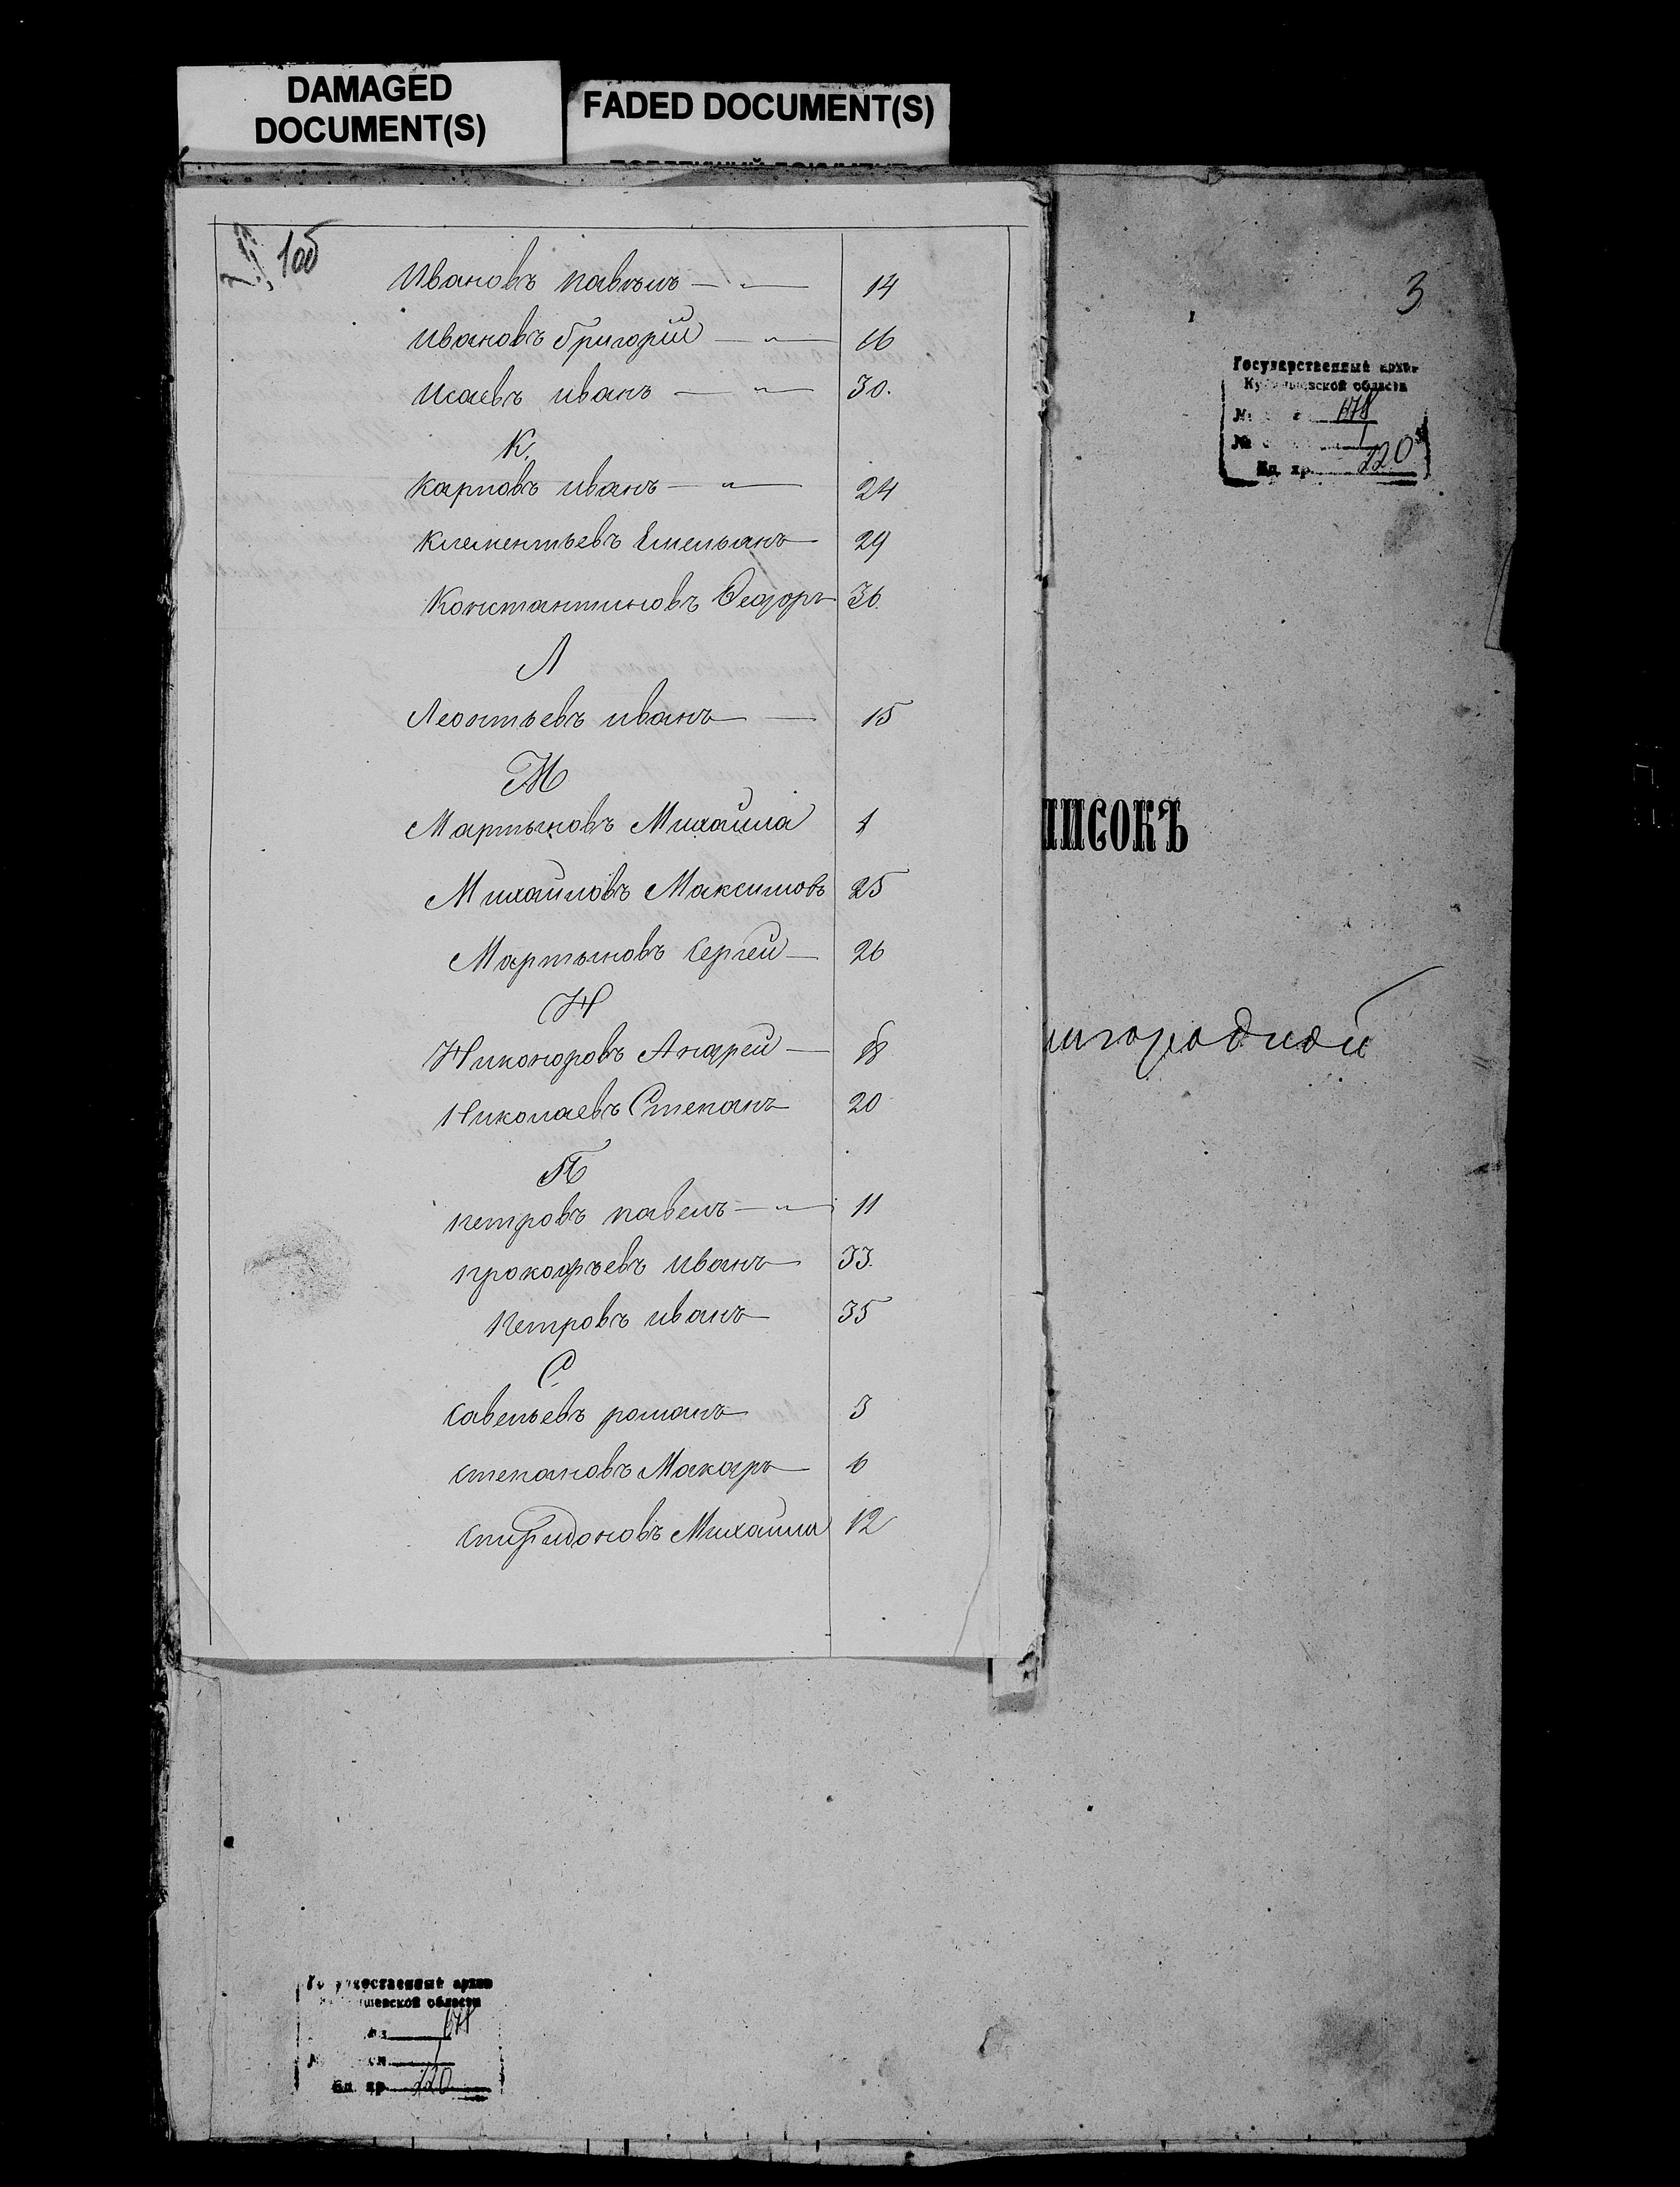 DAMAGED
DOCUMENT(S)
FADED DOCUMENT(S)
1об
Ивановъ павелъ — " — 14
Ивановъ Григорій — " — 16
Исаевъ иванъ — " — 30.
К.
Карповъ иванъ — " — 24
Клементьевъ Емельянъ — 29
Константиновъ Ѳедоръ 36.
Л
Леонтьевъ иванъ — 15
М
Мартыновъ Михаила 1
Михаиловъ Максимовъ 25
Мартыновъ Сергей — 26
Н
Никоноровъ Андрей — 18
Николаевъ Степанъ 20
П
петровъ павелъ — " — 11
прокофьевъ иванъ — 33.
Петровъ иванъ — 35
С.
Савельевъ романъ 3
степановъ Макаръ — 6
спиридоновъ Михаила 12
3
Государственный архив
ской области
№ 678
№ 1
Ед. хр. 220
ПИСОКЪ
игородной
ственный архив
шевской области
678
1
Ед. хр. 220